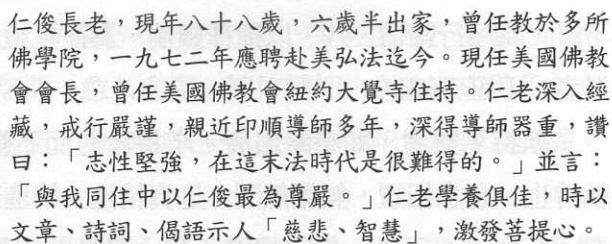 仁俊長老，現年八十八歲，六歲半出家，曾任教於多所
佛學院，一九七二年應聘赴美弘法迄今。現任美國佛教
會會長，曾任美國佛教會紐約大覺寺住持。仁老深入經
藏，戒行嚴謹，親近印順導師多年，深得導師器重，讚
曰：「志性堅強，在這末法時代是很難得的。」並言：
「與我同住中以仁俊最為尊嚴。」仁老學養俱佳，時以
文章、詩詞、偈語示人「慈悲、智慧」，激發菩提心。